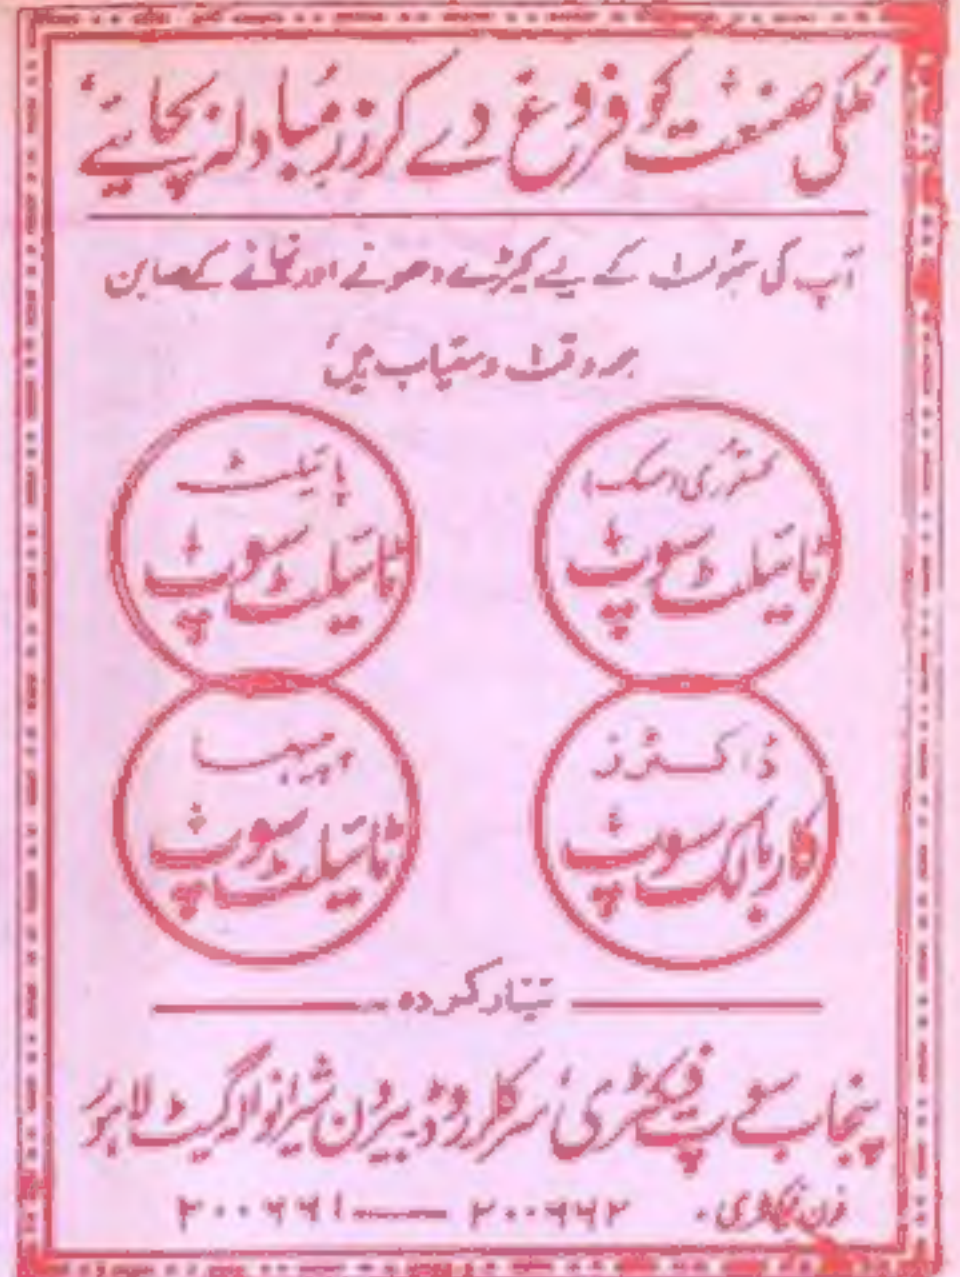 ملکی صنعت کو فروغ دے کر زرِ مبادلہ بچائیے،
آپ کی سہولت کے لیے کپڑے دھونے اور نہانے کے صابن
ہر وقت دستیاب ہیں،
کستوری (مسک)
ٹائیلٹ سوپ
پائیلٹ
ٹائیلٹ سوپ
ڈاکٹرز
کاربالک سوپ
ٹائیلٹ سوپ
تیار کردہ
پنجاب سوپ فیکٹری، سرکلر روڈ بیرون شیرانوالہ گیٹ لاہور
فون فیکٹری۔ ۲۰۰۶۶۲ — ۲۰۰۶۶۱